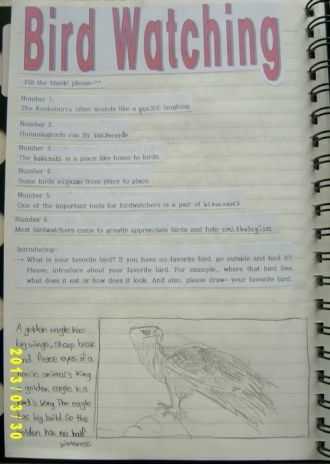 Bird Watching
Fill the blank! please~^^
Number 1.
The Kookaburra often sounds like a person laughing.
Number 2.
Hummingbirds can fly backwards.
Number 3.
The habitats is a place like home to birds.
Number 4.
Some birds migrate from place to place.
Number 5.
One of the important tools for birdwatchers is a pair of binoculars.
Number 6.
Most birdwatchers come to greatly appreciate birds and help ornithologists.
Introducing~
→ What is your favorite bird? If you have no favorite bird, go outside and find it!!
Please, introduce about your favorite bird. For example... where that bird live,
what does it eat or how does it look. And also, please draw~ your favorite bird.
A golden eagle has
big wings, sharp beak
and fierce eyes. If a
lion is animal's king
a golden eagle is a
bird's king. The eagle
has big build. So the
golden has no
2013/03/30